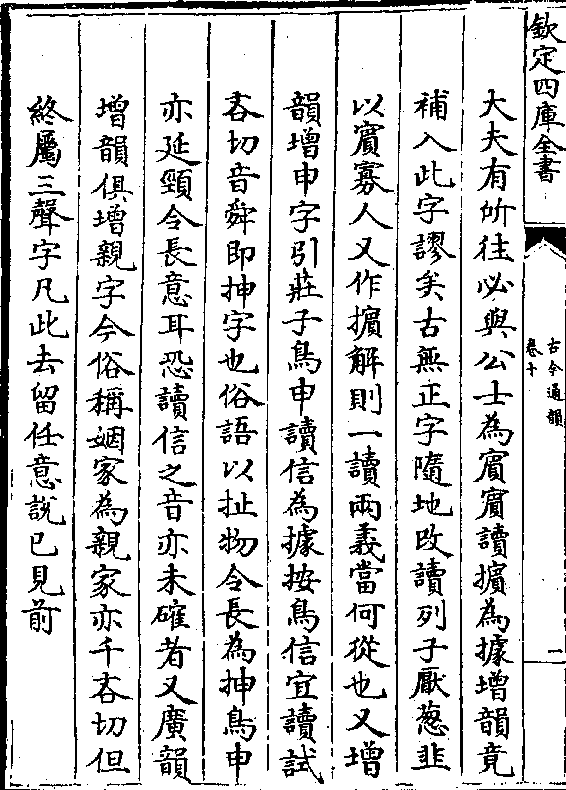 欽定四庫全書
古今通韻
卷十
一
大夫有所往必與公士為賓賓讀擯為據增韻竟
補入此字謬矣古無正字隨地改讀列子厭葱韭
以賓寡人又作擯解則一讀兩義當何從也又增
韻增申字引莊子鳥申讀信為據按鳥信宜讀試
吝切音舜即抻字也俗語以扯物令長為抻鳥申
亦延頸令長意耳恐讀信之音亦未確者又廣韻
增韻俱增親字今俗稱姻家為親家亦千吝切但
終屬三聲字凡此去留任意說已見前